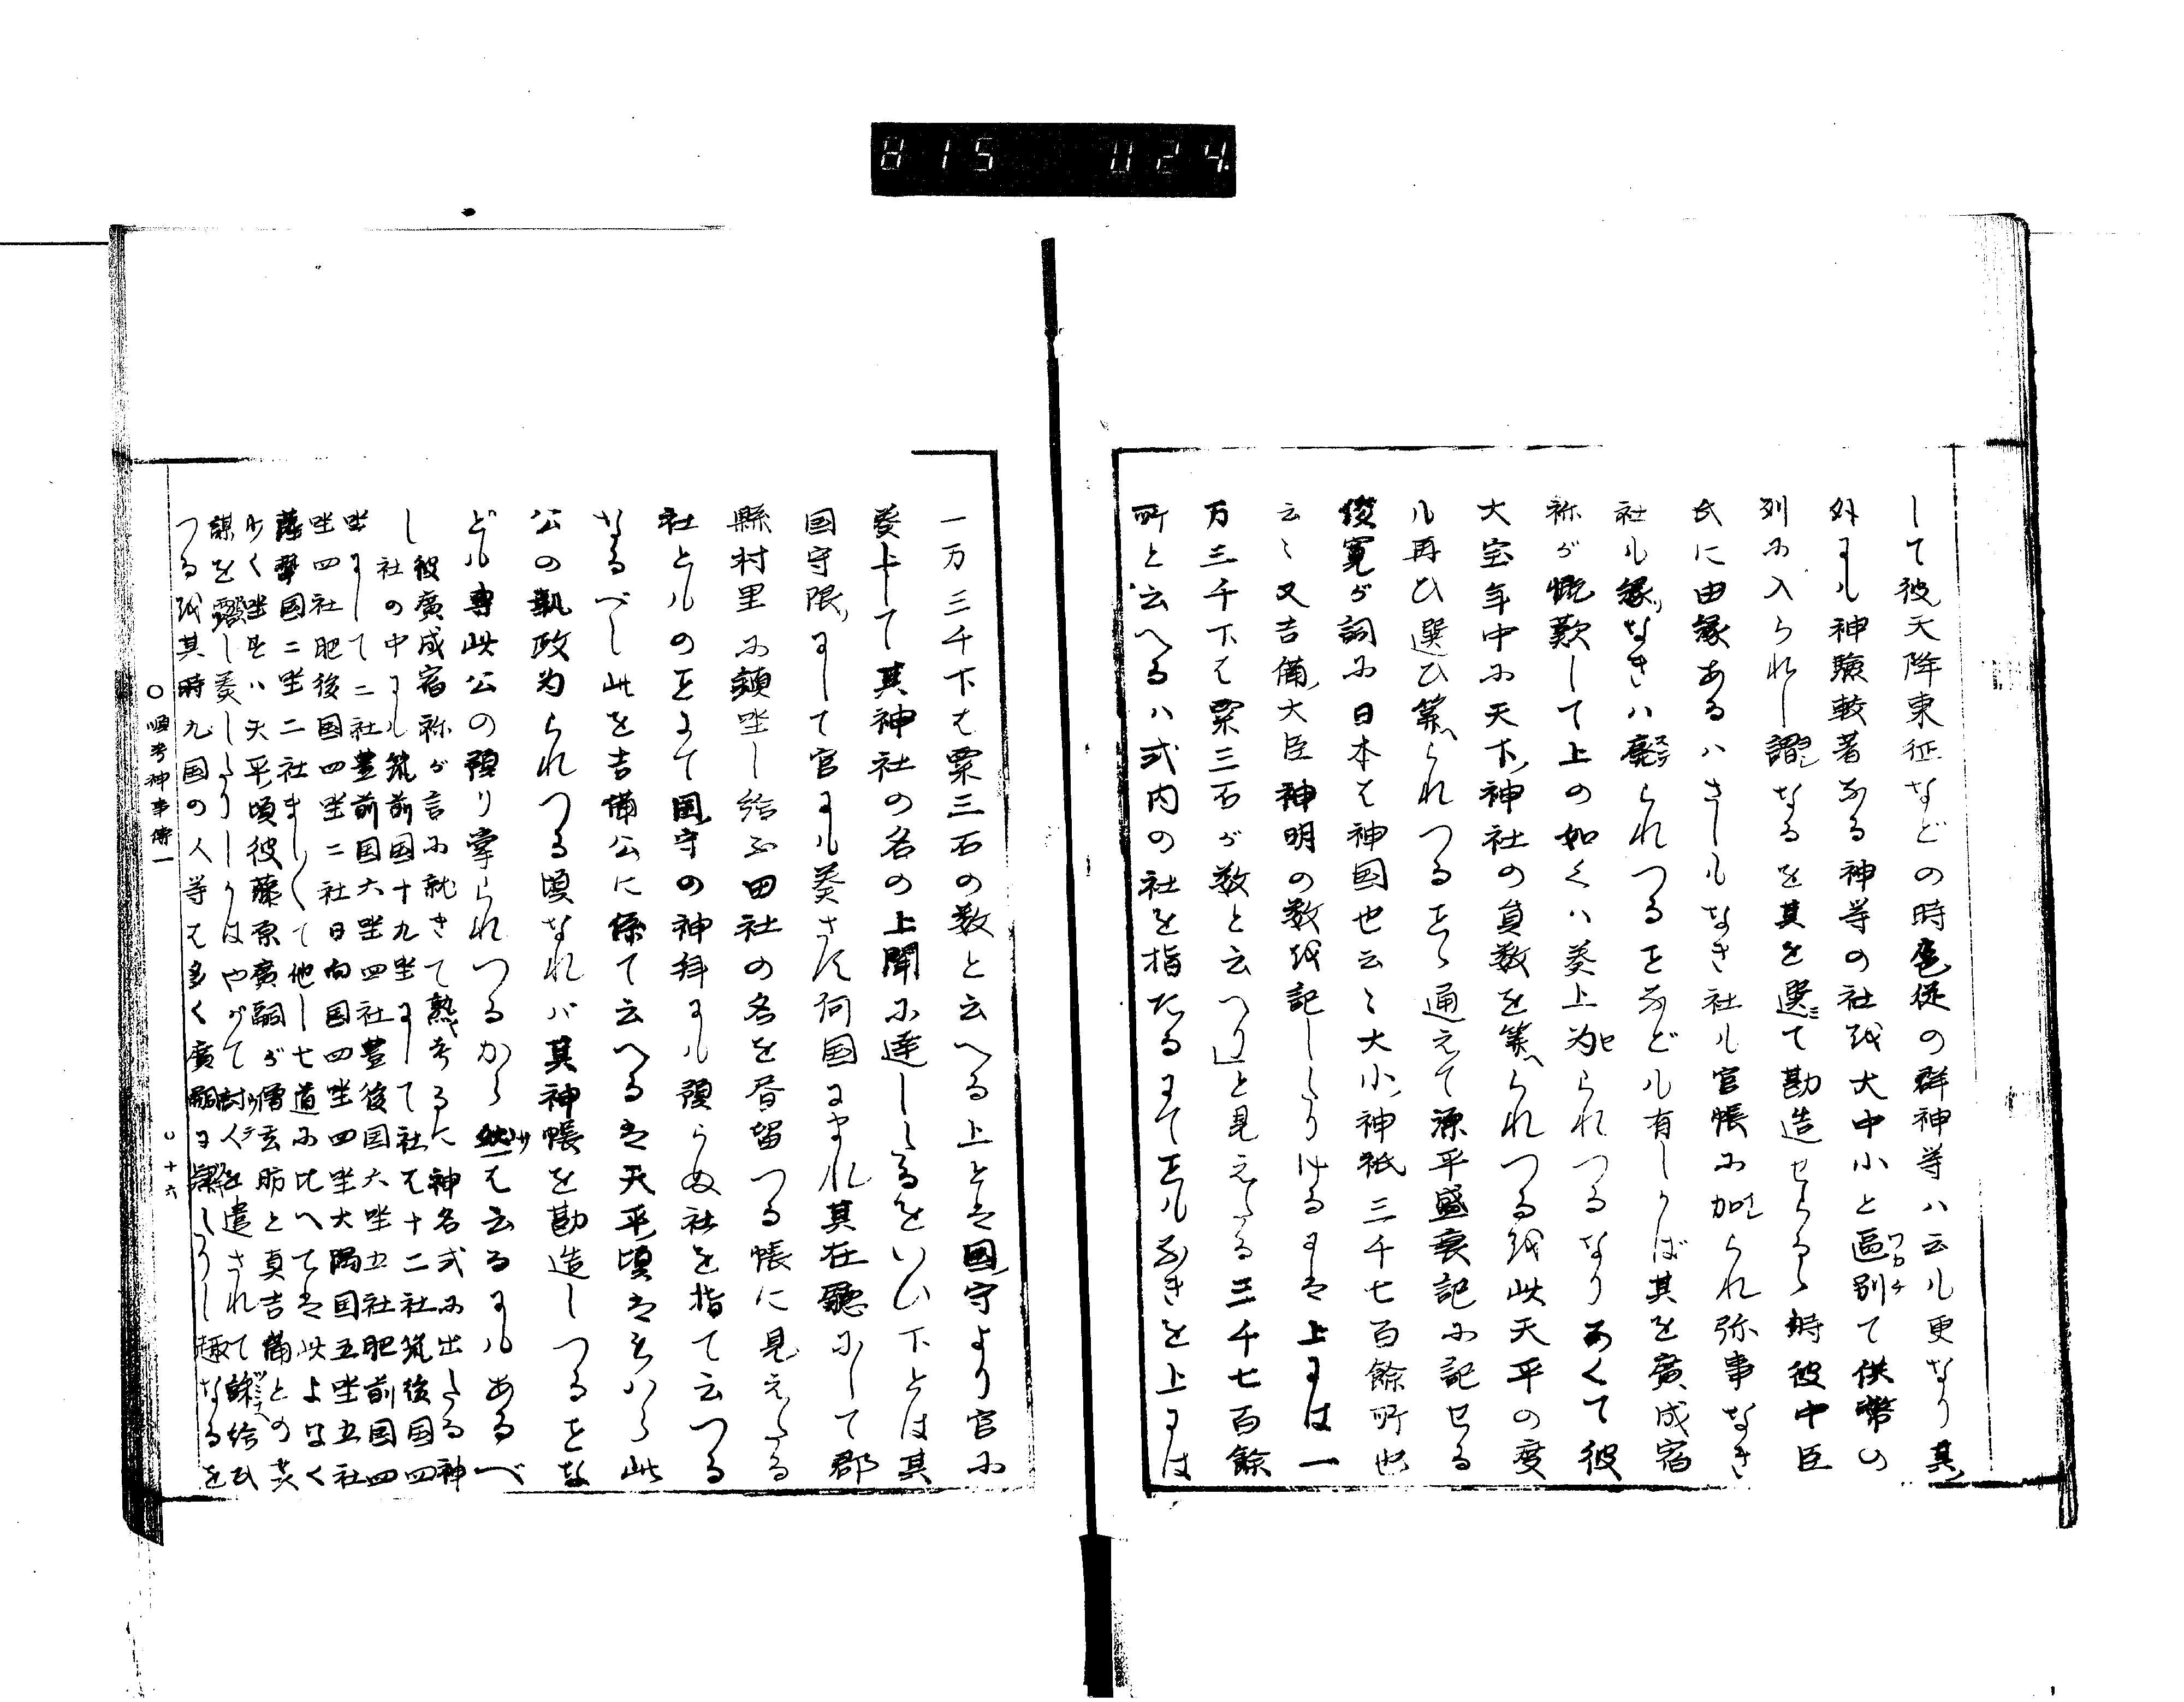 815 024
して彼天降東征などの時扈従の群神等ハ云ルも更なり其
外にも神驗較著なる神等の社或大中小と區別て供幣の
列に入られし謂なるを其を選て勘造せらるゝ時彼中臣
氏に由縁あるハさしもなき社も官帳に加られ弥事なき
社も縁なきハ廃られつるをなども有しかば其を廣成宿
祢が慨歎して上の如くハ奏上為られつるなりあくて彼
大宝年中に天下神社の員数を算られつる或此天平の度
も再ひ選ひ算られつるをら通えて源平盛衰記に記せる
俊寛が詞に日本は神国也云々大小神祇三千七百餘所也
云々又吉備大臣神明の数或記したりけるには上には一
万三千下は粟三石が数と云へり」と見えたる三千七百餘
所と云へるハ式内の社を指たるにてをもなきを上には
一万三千下は粟三石の数と云へる上とは国守より官に
奏上して其神社の名の上聞に達したるをいひ下とは其
国守限にして官にも奏さず何国にまれ其在廳にして郡
縣村里に鎮坐し給ふ田社の名を昏留つる帳に見えたる
社どものをにて国守の神拜にも預らぬ社を指て云つる
なるべし此を吉備公に係て云へるは天平頃はもハら此
公の執政為られつる頃なれバ其神帳を勘造しつるをな
ども専此公の預り掌られつるから然は云るにもあるべ
し 彼廣成宿祢が言に就きて熟考るに神名式に出たる神
社の中にも筑前国十九坐にして社は十二社筑後国四
坐にして二社豊前国六坐四社豊後国六坐五社肥前国四
坐四社肥後国四坐二社日向国四坐四坐大隅国五坐五社
薩摩国二坐二社ましくて他し七道に比へては此よなく
少く坐をハ天平頃彼藤原廣嗣が僧玄昉と真吉備との其
謀を露し奏したりしかはやがて討人を遣されて誅給ひ
つる或其時九国の人等は多く廣嗣に
たりし趣なるを
○順考神事傳一
○十六